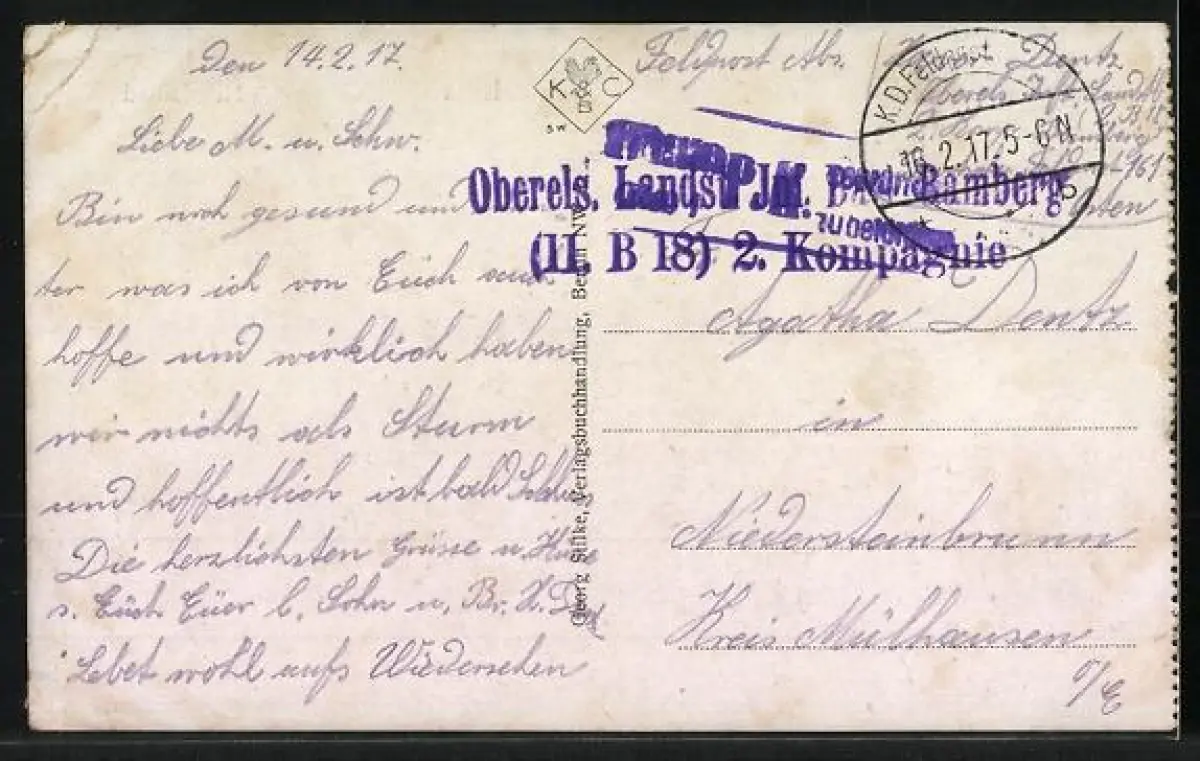 Den 14.2.17.
Liebe M. u. Schw.
Bin noch gesund und
ter was ich von Euch auch
hoffe und wirklich haben
wir nichts als Sturm
und hoffentlich ist bald Schluss
Die herzlichsten Grüsse u. Küsse
s. Euch Euer l. Sohn u. Br. X. Dentz
Lebet wohl aufs Wiedersehen
K C
& S
SW
Georg Stilke, Verlagsbuchhandlung, Berlin NW.
Feldpost Abs.
Dentz
Oberels. Inf. Landst.
K.D.Feldpost
16.2.17.5-6N
b
Oberels. Landst. Inf. Bamberg
(II. B 18) 2. Kompagnie
zu
Agatha Dentz
in
Niedersteinbrunn
Kreis Mülhausen
O/E